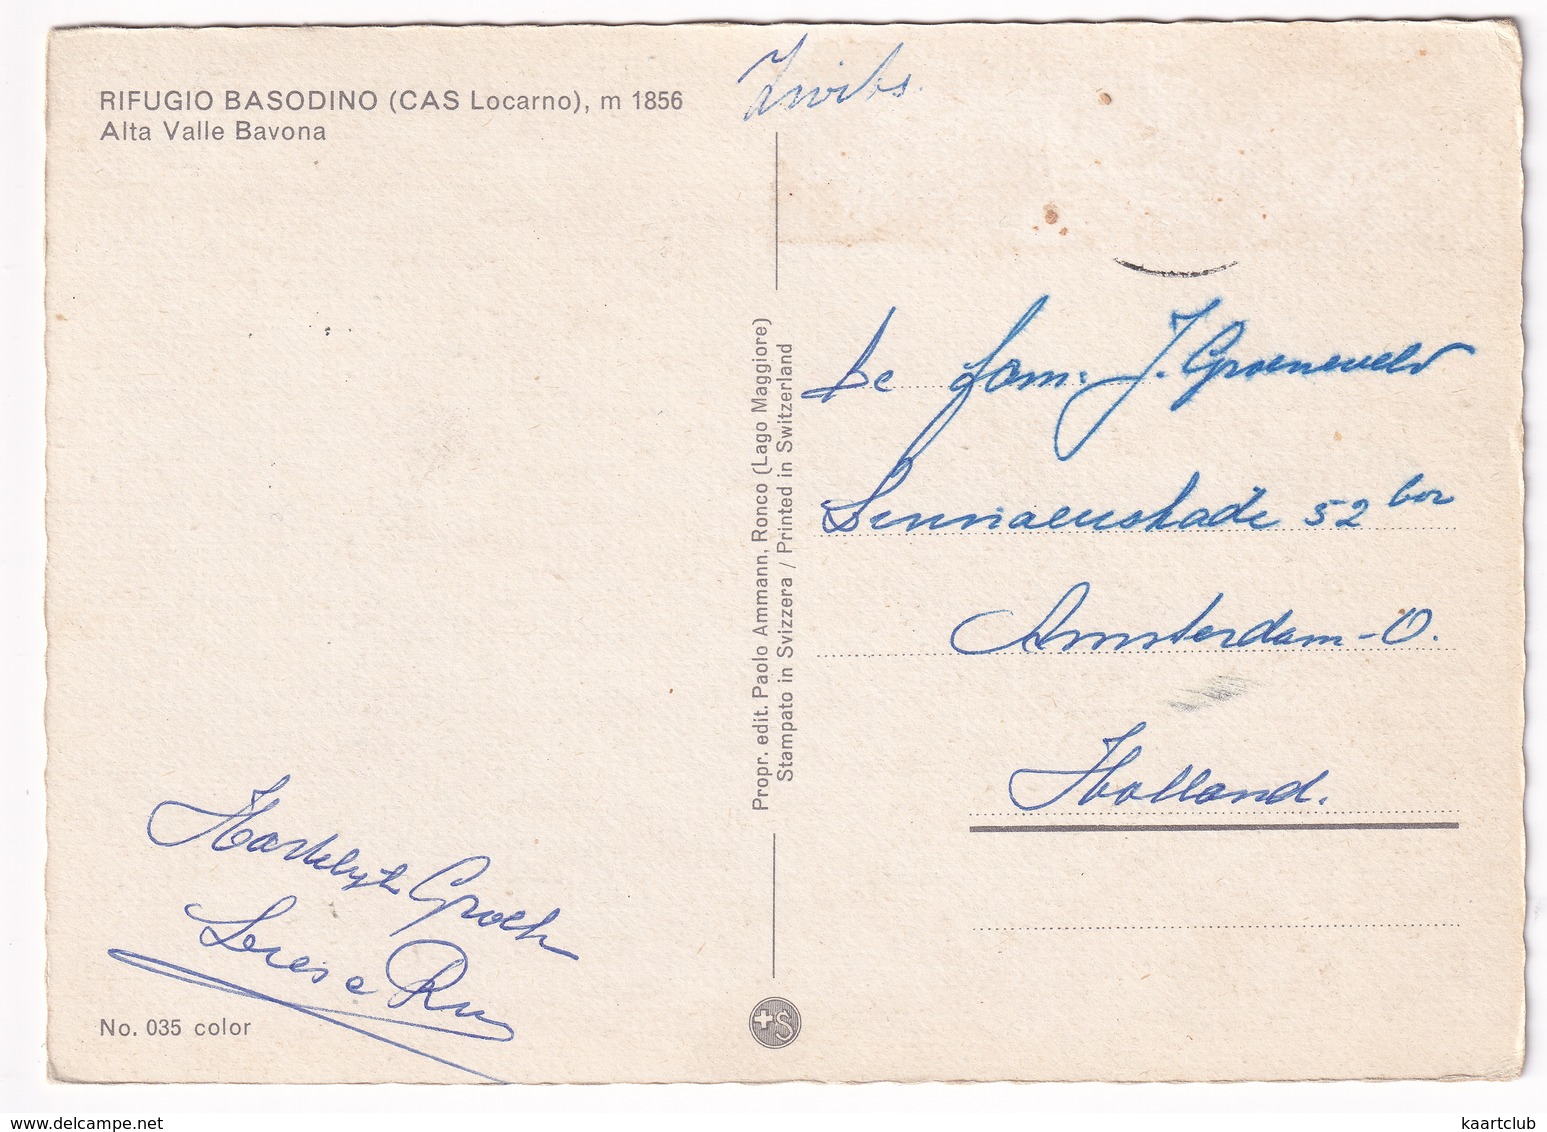 RIFUGIO BASODINO (CAS Locarno), m 1856
Alta Valle Bavona
Propr. edit. Paolo Ammann, Ronco (Lago Maggiore)
Stampato in Svizzera / Printed in Switzerland
fam. J. Groeneveld
52
Amsterdam-O.
Holland.
Hartelijk Groet
No. 035 color
+S
delcampe.net
kaartclub